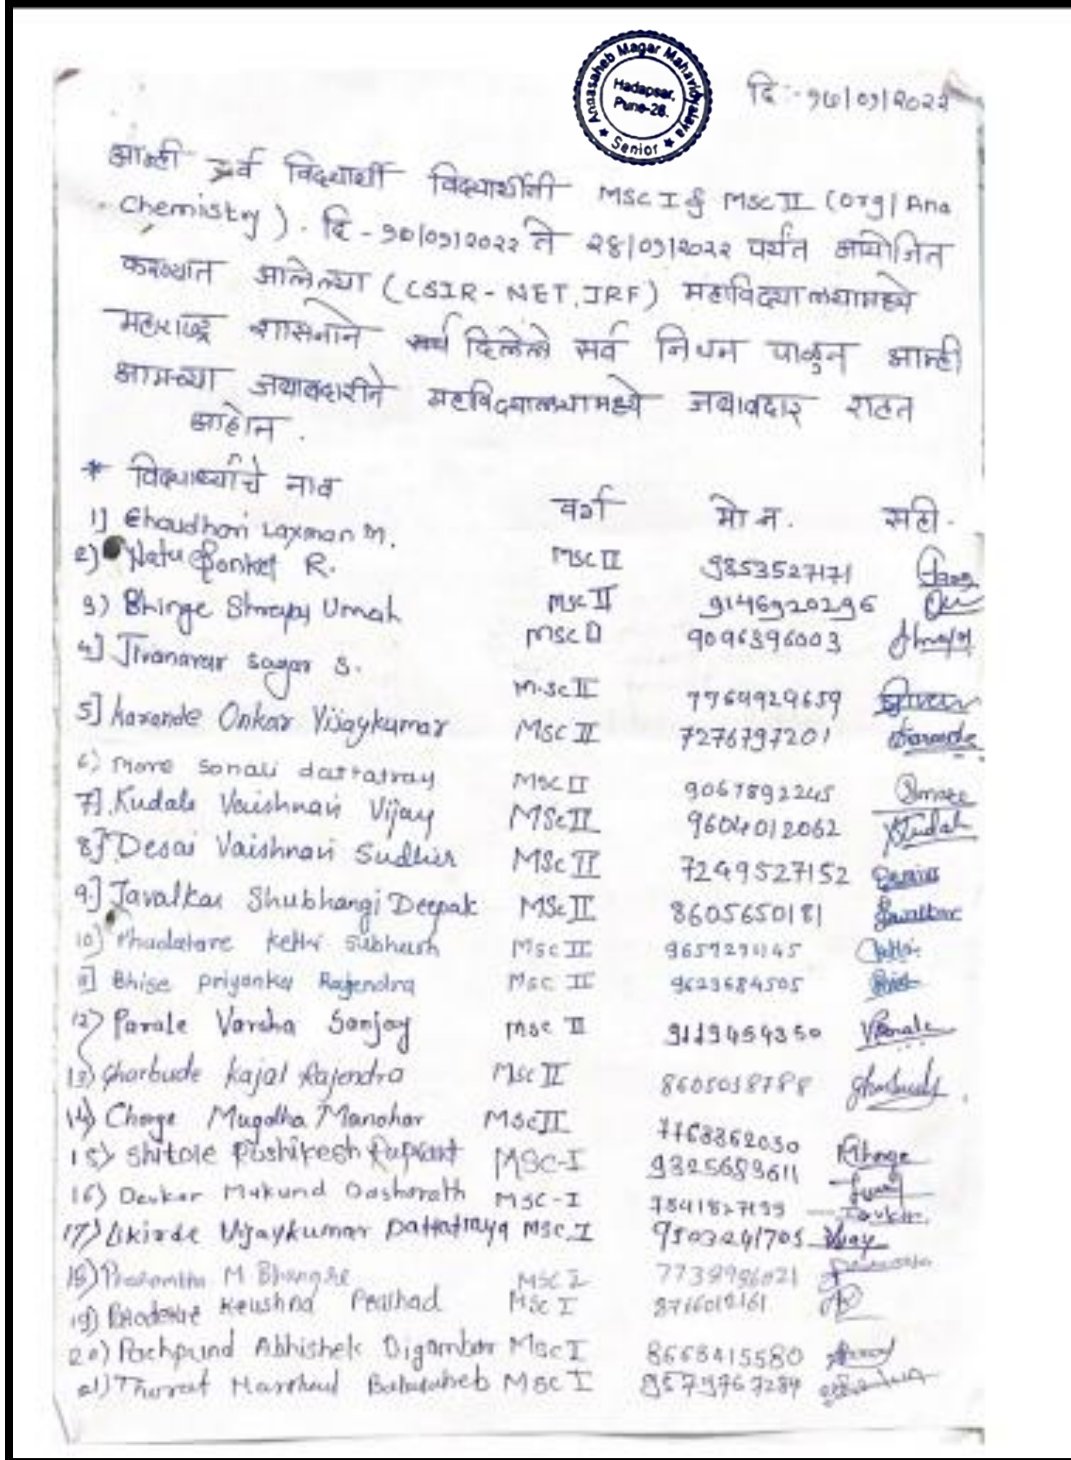 Annasaheb Magar Mahavidyalaya
Hadapsar,
Pune-28.
★ Senior ★
दि :- १७/०१/२०२२
आम्ही सर्व विद्यार्थी विद्यार्थीनी MSc I & MSc II (Org/Ana
Chemistry). दि - १७/०१/२०२२ ते २४/०१/२०२२ पर्यंत आयोजित
करण्यात आलेल्या (CSIR-NET, JRF) महाविद्यालयामध्ये
महाराष्ट्र शासनाने दिलेले सर्व नियम पाळुन आम्ही
आमच्या जबाबदारीने महाविद्यालयामध्ये जबाबदार राहत
आहोत.
* विद्यार्थ्याचे नाव वर्ग मो न. सही.
1] Choudhari Laxman M. MSc II 9853527171
2) Natu R. MSc II 9146920296
3) Bhinge Umesh MSc II 9096396003
4] Jivanavar Sagar S. M.sc II 7769929659
5] Karande Onkar Vijaykumar MSc II 7276797201 Karande
6) More Sonali dattatray MSc II 9067892245 Smore
7]. Kudale Vaishnavi Vijay MSc II 9604012062 Kudale
8]. Desai Vaishnavi Sudhir MSc II 7249527152
9.] Javalkar Shubhangi Deepak MSc II 8605650181 Javalkar
10) Phadatare Subhash MSc II
11] Bhise priyanka Rajendra MSc II 9623684505
12) Parale Varsha Sanjay MSc II 9119454350
13) Gharbude Kajal Rajendra MSc II 8605038788 Gharbude
14) Chorge Mugdha Manohar MSc II 7768862030
15) Shitole MSC-I 9325689611
16) Devkar Mukund Dasharath MSC-I
17) Vijaykumar Dattatraya MSc I 9503241705 Vijay
18) M MSC I 7738996021
19) MSc I
20) Pachpind Abhishek Digambar MSc I 8668415580
21) Thorat Harshad Balasaheb MSc I 9579767284